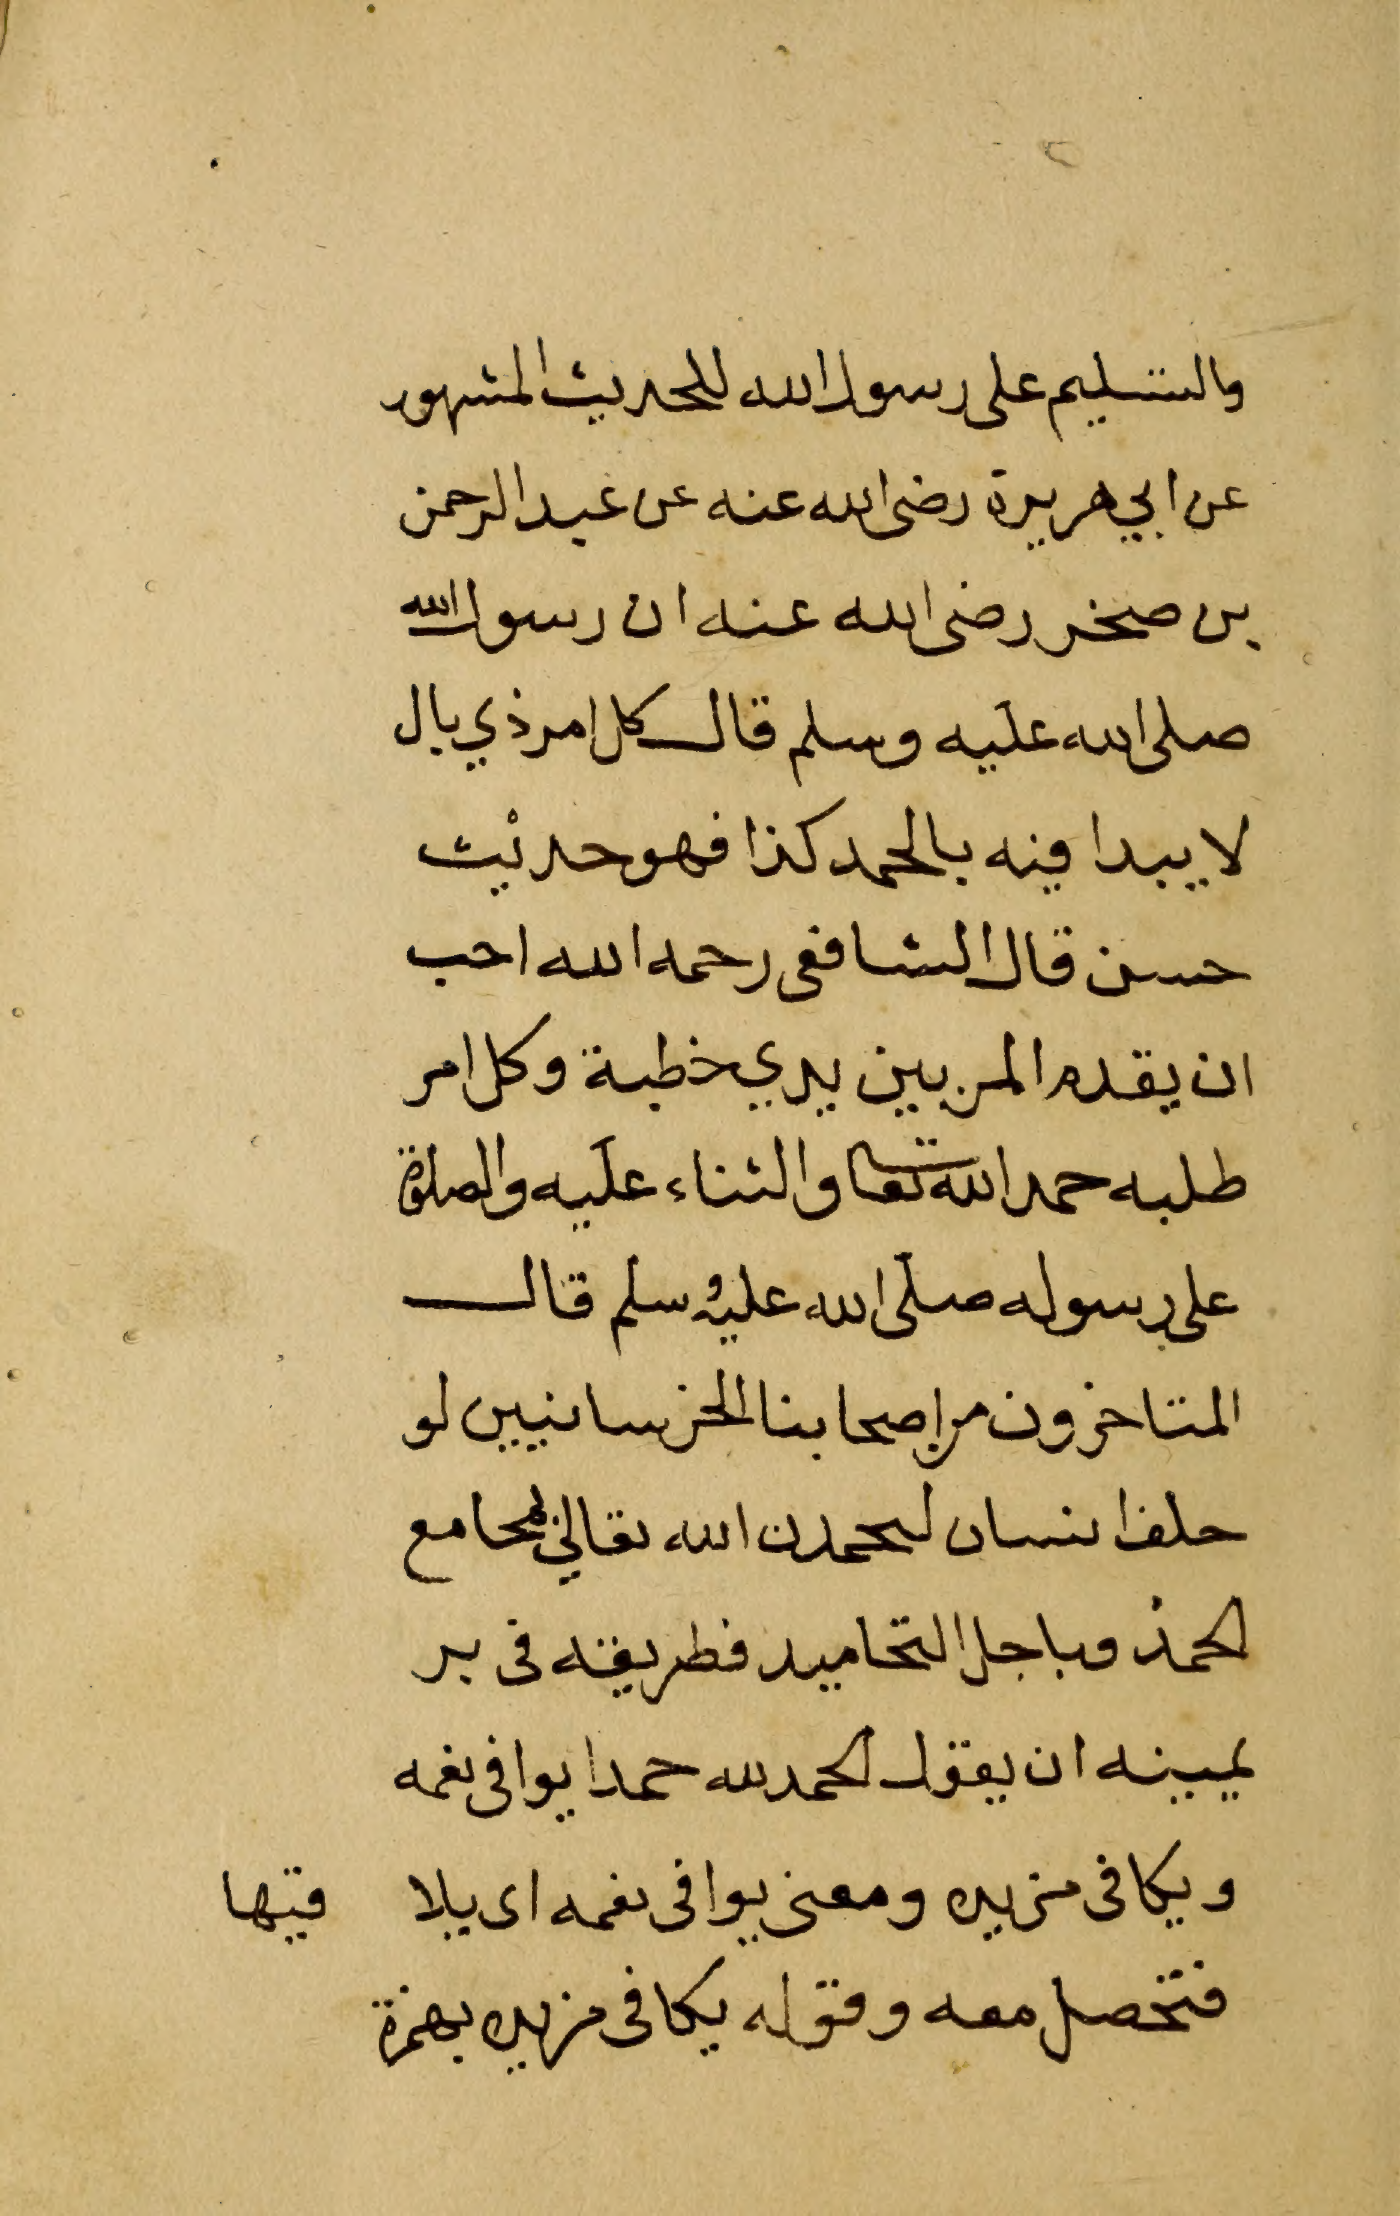 والتسليم على رسول الله للحديث المشهور
عن ابي هريرة رضى الله عنه عن عبد الرحمن
بن صخر رضى الله عنه ان رسول الله
صلى الله عليه وسلم قال كل امر ذي بال
لا يبدا فيه بالحمد كذا فهو حديث
حسن قال الشافعى رحمه الله احب
ان يقدم المر بين يدي خطبة وكل امر
طلبه حمد الله تعالى والثناء عليه والصلوة
على رسوله صلى الله عليه وسلم قال
المتاخرون من اصحابنا الخرسانيين لو
حلف انسان ليحمدن الله تعالى بمجامع
الحمد وباجل التحاميد فطريقه فى بر
يمينه ان يقول الحمد لله حمدا يوافى نعمه
ويكافى مزيده ومعنى يوافى نعمه اى يلا قيها
فتحصل معه وقوله يكافى مزيده بهمزة